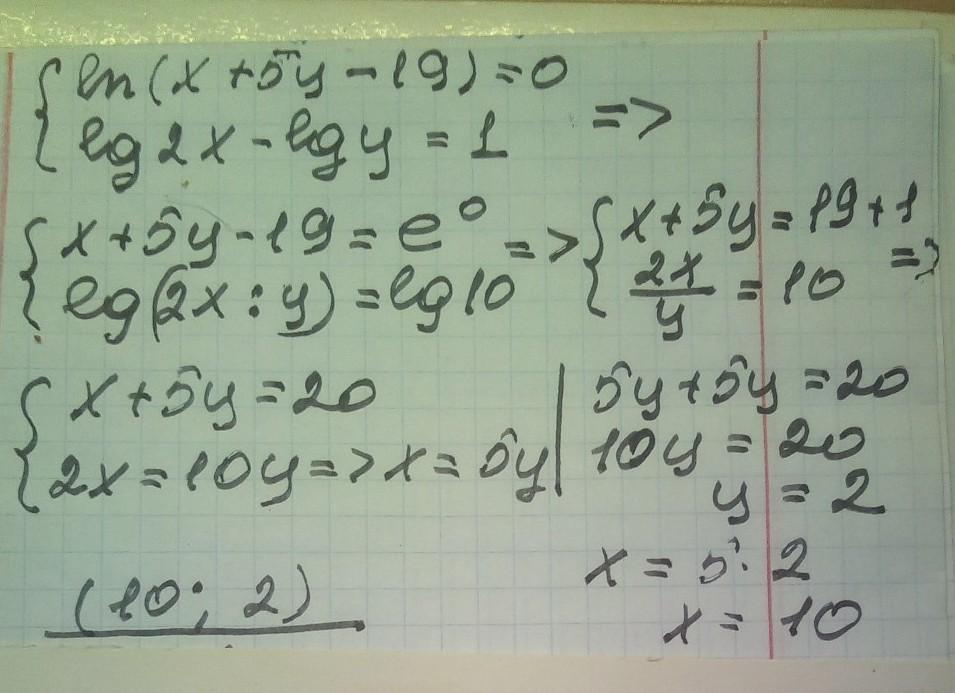 { ln(x+5y-19)=0
{ lg2x-lgy=1 =>
{ x+5y-19=e⁰
{ lg(2x:y)=lg10 =>
{ x+5y=19+1
{ 2x/y = 10 =>
{ x+5y=20
{ 2x=10y=>x=5y
5y+5y=20
10y=20
y=2
x=5·2
x=10
(10; 2)